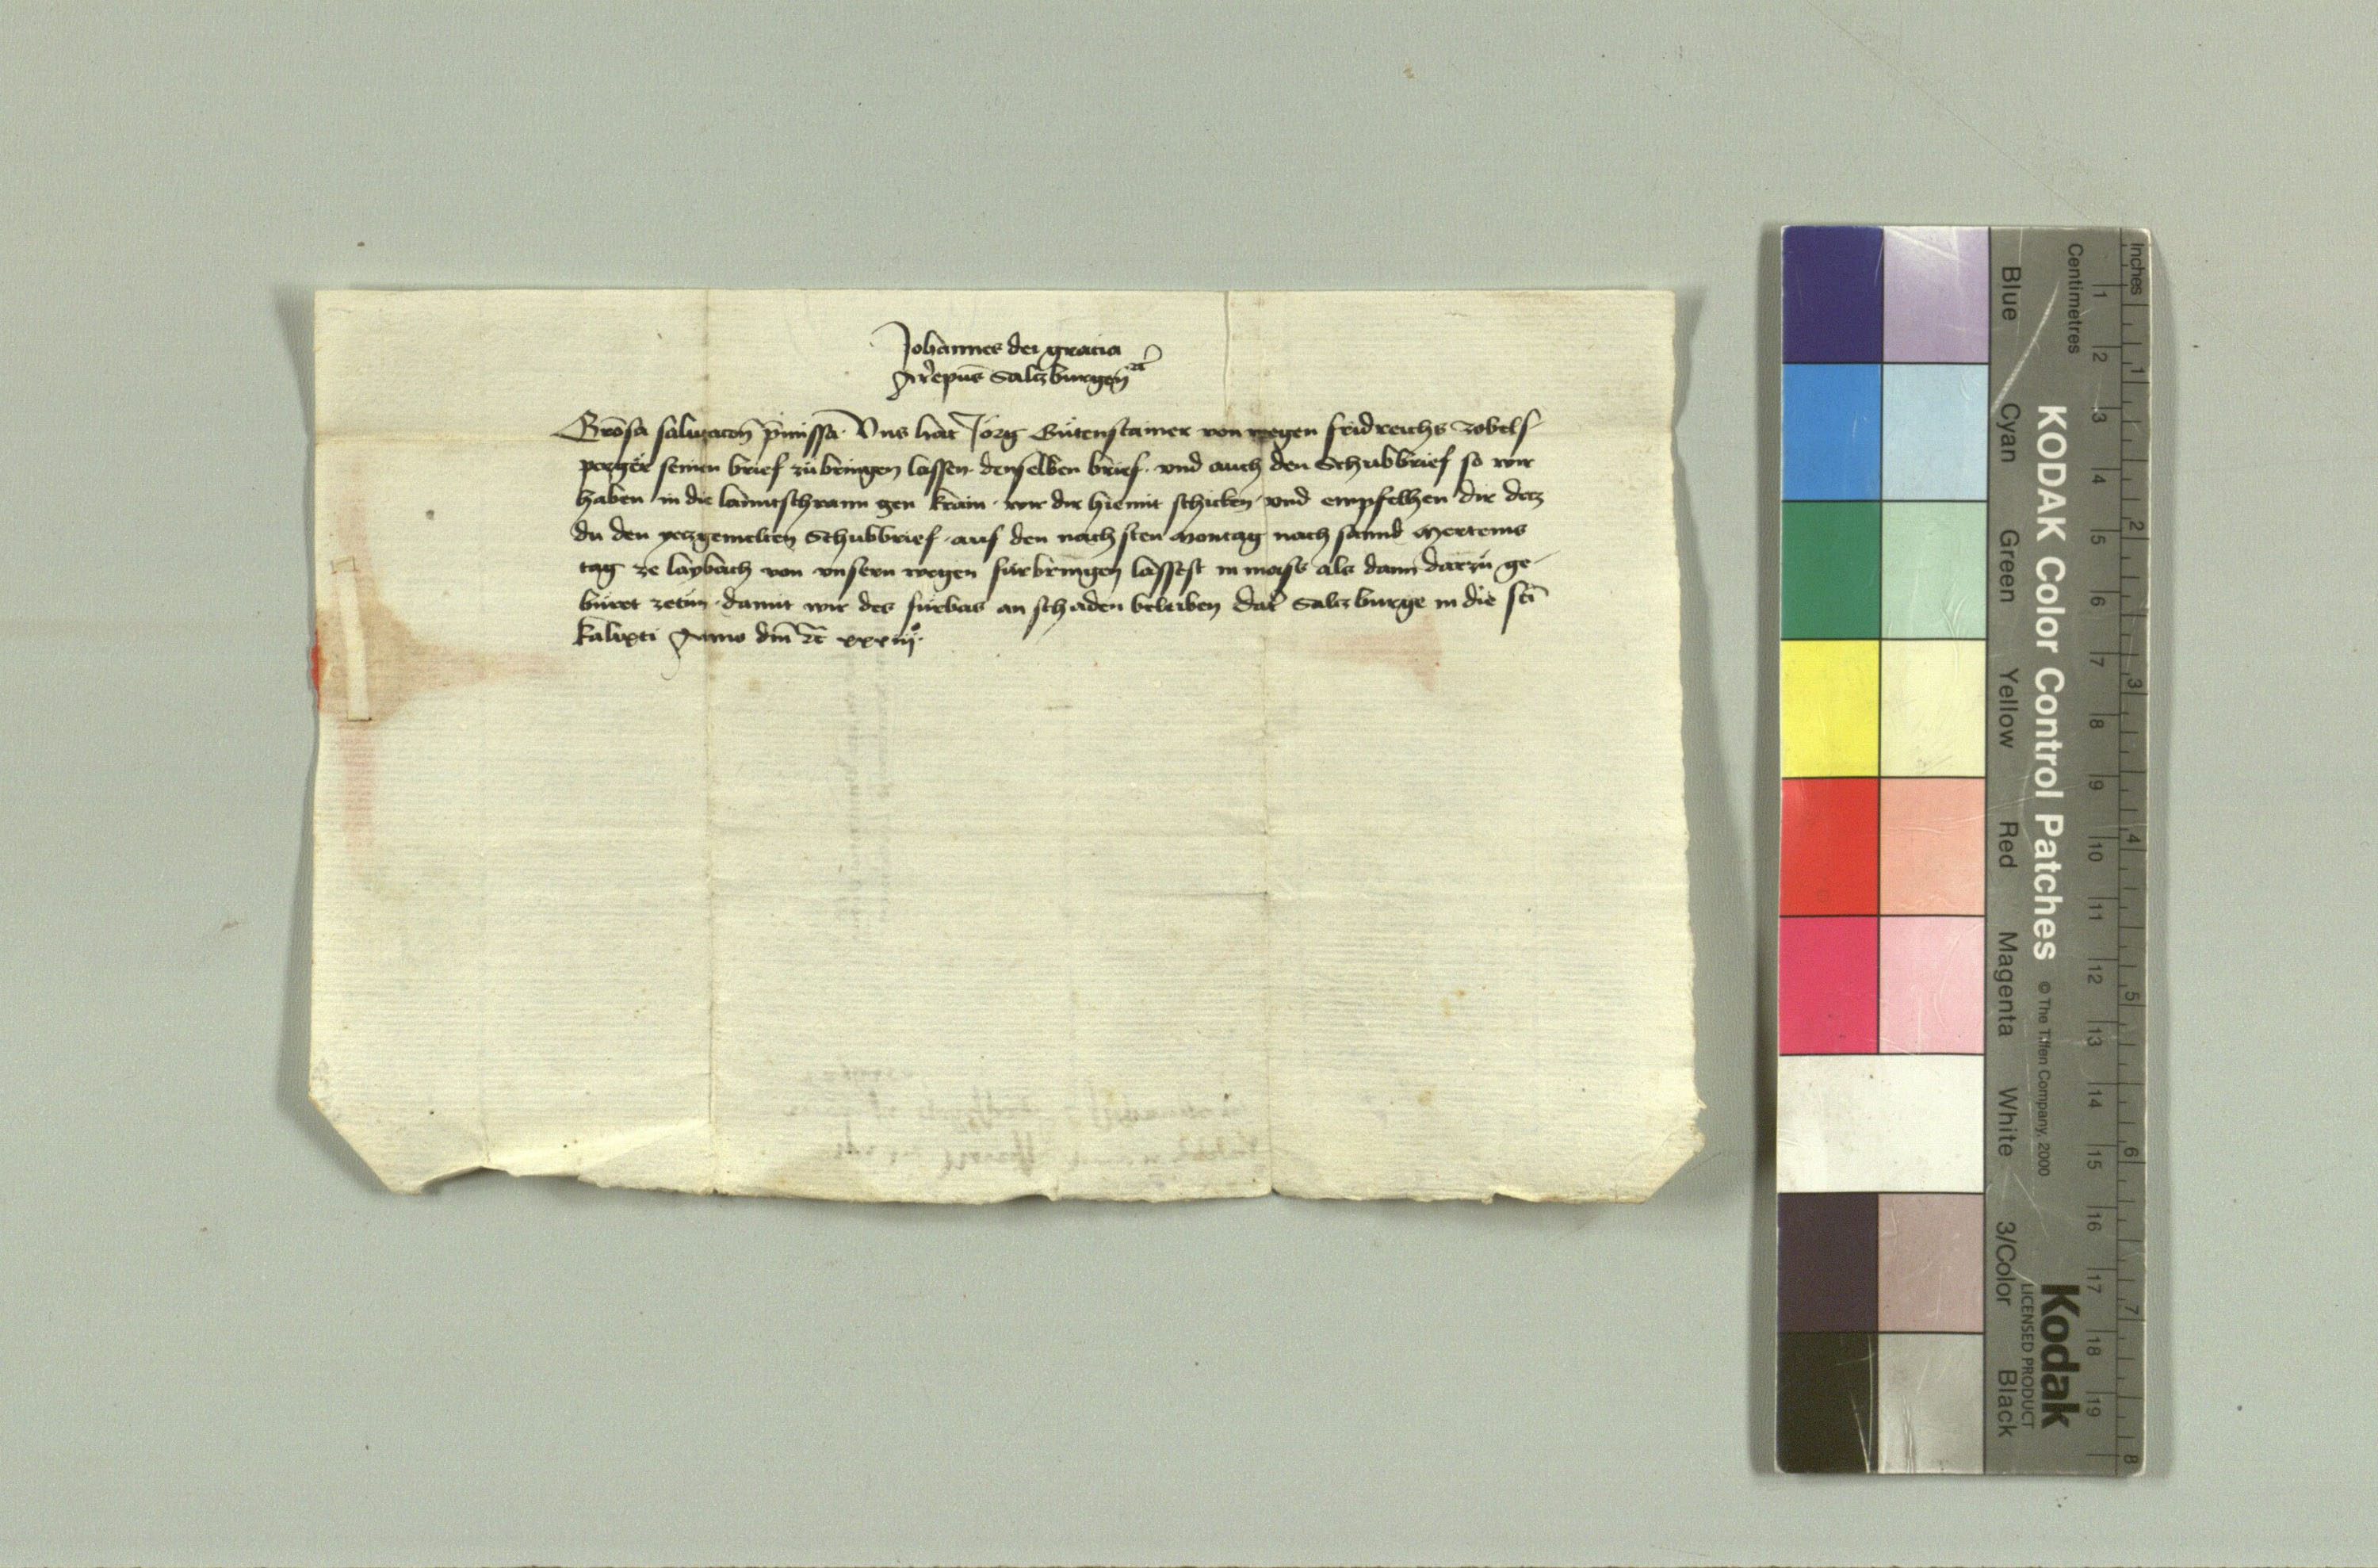 Johannes dei gracia
Arc̄epus Salczburgen̄ ꝛc
Grosa salutacōn p̄missa. Vns hat Jorg Gutenstainer von wegen fridreichs zobelſ-
perger seinen brief zubringen lassen denselben brief. vnd auch den Schubbrief so wir
haben in die lanntschrann gen krain. wir dir hiemit schicken. vnd emphelhen dir daz
du den yezgemelten Schubbrief auf den nachsten Montag nach sannd Mertems
tag ze laybach von vnsern wegen fürbringen lassest in mass als dann darzu ge-
buret zetun. damit wir des furbas an schaden beleiben Dat̄ Salczburge in die sc̄i
kalixti Anno dm̄ ꝛc xxxiijº.
KODAK Color Control Patches © The Tiffen Company, 2000
Kodak
LICENSED PRODUCT
Inches 1 2 3 4 5 6 7 8
Centimetres 1 2 3 4 5 6 7 8 9 10 11 12 13 14 15 16 17 18 19
Blue Cyan Green Yellow Red Magenta White 3/Color Black